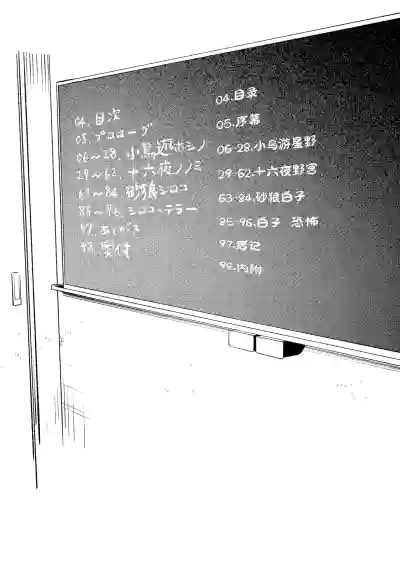 04. 目次
05. プロローグ
06～28. 小鳥遊ホシノ
29～62. 十六夜ノノミ
63～84. 砂狼シロコ
85～96. シロコ*テラー
97. あとがき
98. 奥付
04.目录
05.序幕
06-28.小鸟游星野
29-62.十六夜野宫
63-84.砂狼白子
85-96.白子 恐怖
97.后记
98.内附